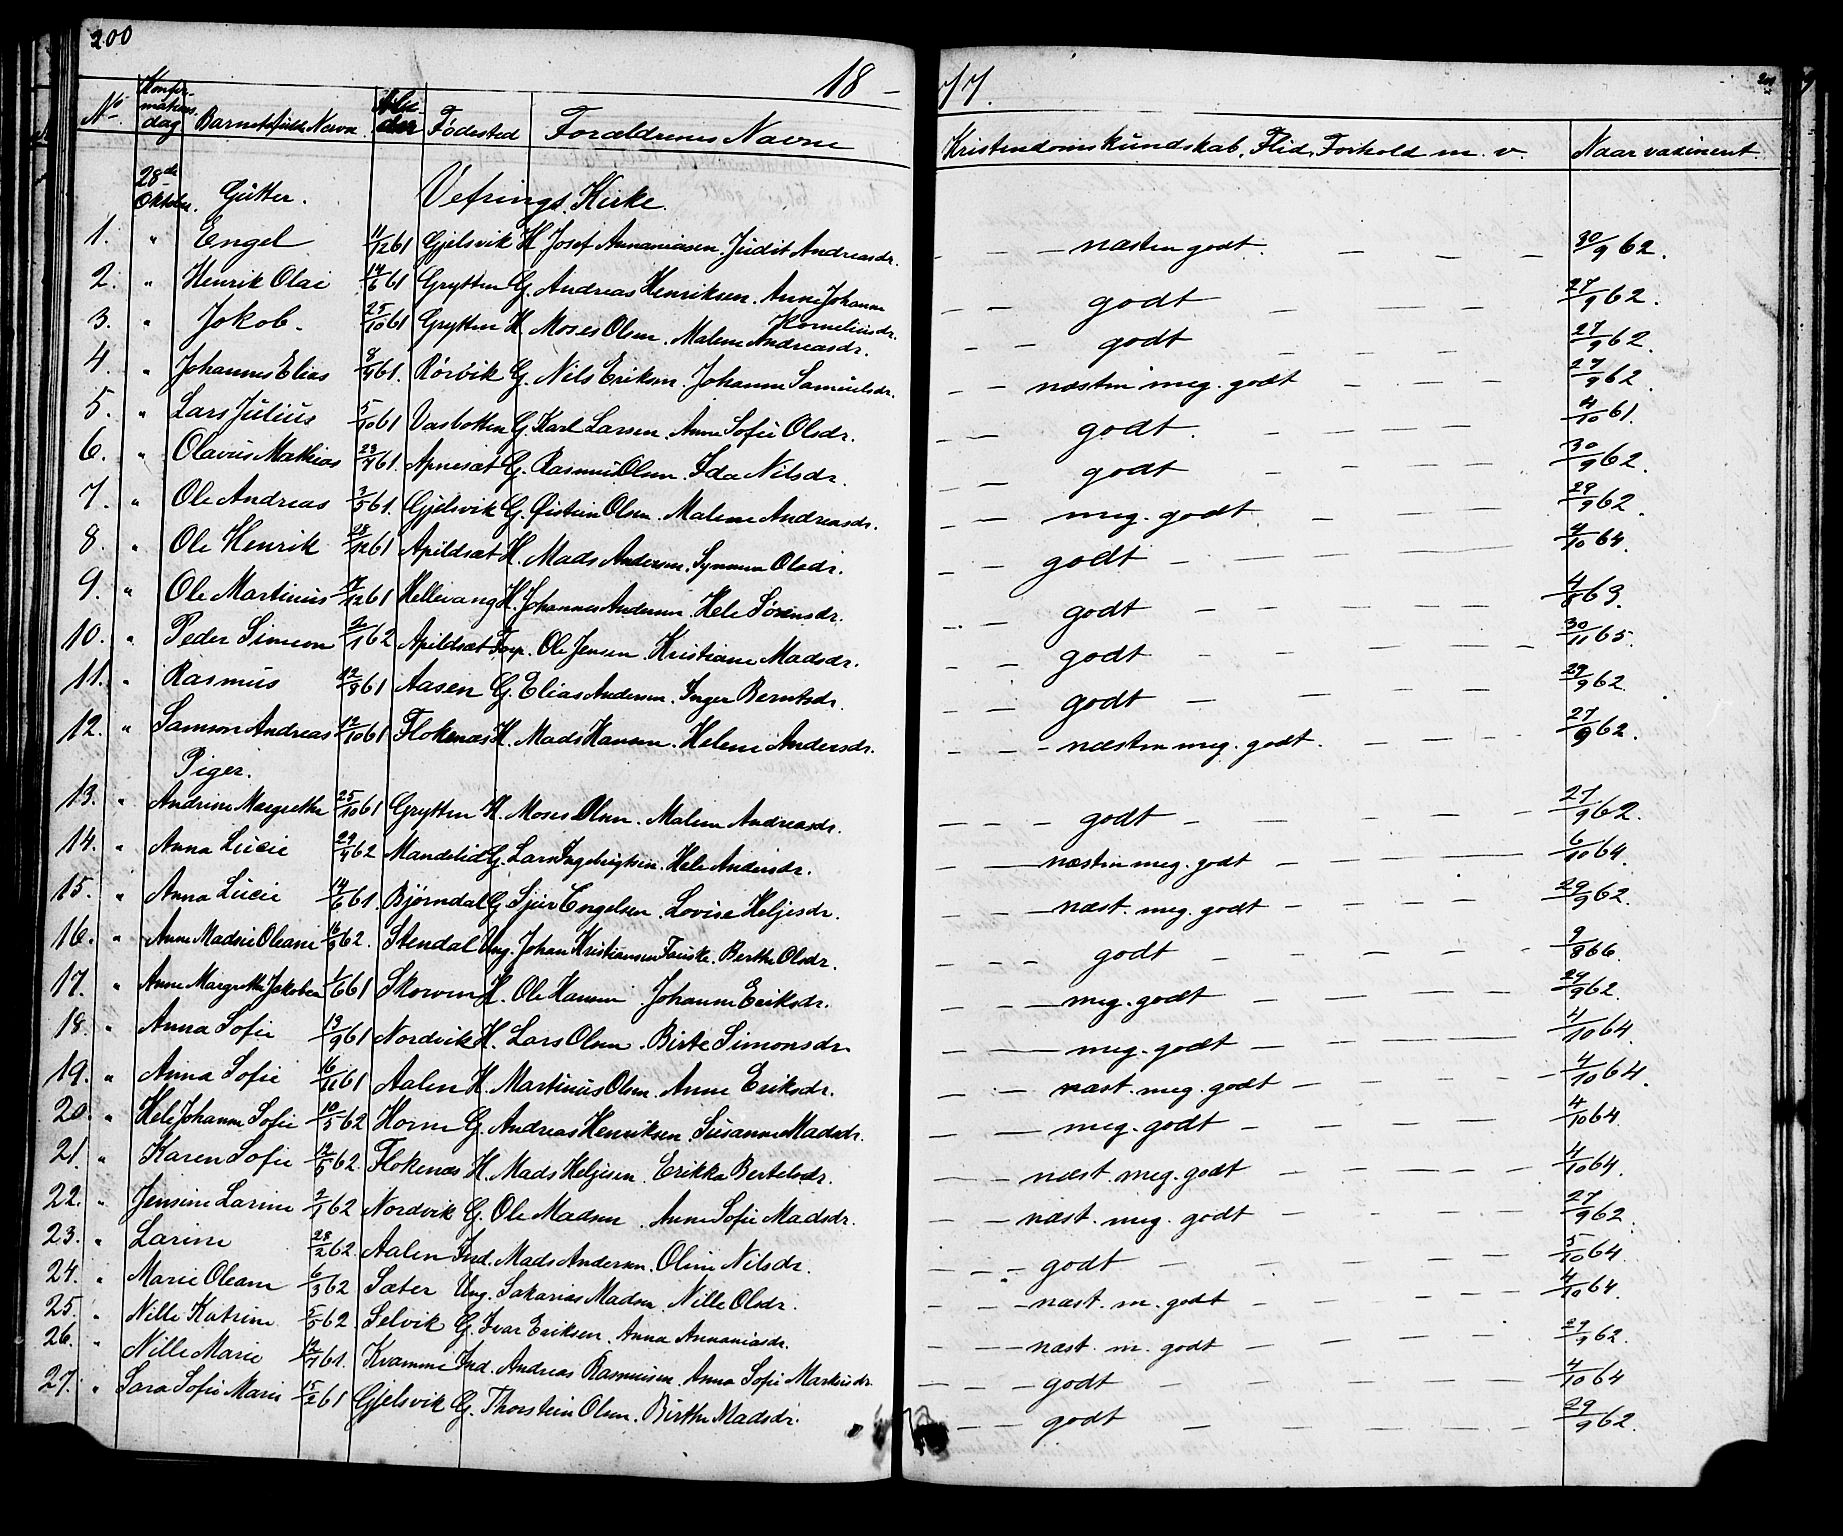 200
18 - 77.
No Konfirmations dag Barnets fulde Navn Alder Fødested Forældrenes Navne Kristendomskundskab, Flid, Forhold m. v. Naar vaxineret.
28de Oktober. Gutter. Vefrings Kirke.
1. " Engel 11/12 61 Gjelsvik H Josef Annaniasen. Judit Andreasdr. - - - næsten godt. - - - 30/9 62.
2. " Henrik Olai 14/6 61 Grytten G. Andreas Henriksen. Anne Johanne Korneliusdr. - - godt 27/9 62.
3. " Jakob. 25/10 61 Grytten H Moses Olsen. Malene Andreasdr. - - godt - - - - 27/9 62.
4. " Johannes Elias 8/4 61. Rørvik G. Nils Eriksen. Johanne Samuelsdr. - - næsten meg. godt - - - 27/9 62.
5. " Lars Julius 5/10 61 Vasbotten G. Karl Larsen. Anne Sofie Olsdr. - - godt. - - - - 4/10 61.
6. " Olavus Mathias 23/4 61. Apnesæt G. Rasmus Olsen. Ida Nilsdr. - - godt - - - - 30/9 62.
7. " Ole Andreas 3/5 61. Gjelsvik G. Øistein Olsen. Malene Andreasdr. - - meg. godt. - - - 29/9 62.
8. " Ole Henrik 28/12 61 Apildsæt H. Mads Andersen. Synneva Olsdr. - - godt - - - - 4/10 64.
9. " Ole Martinus 12 61 Hellevang H. Johannes Andersen. Hele Sørensdr. - - godt - - - - 4/8 63.
10. " Peder Simeon 2/1 62 Apildsæt Insp. Ole Jensen. Kristiane Madsdr. - - godt - - - - - 30/11 65.
11. " Rasmus 12/8 61 Aasen G. Elias Andersen. Inger Berntsdr. - - godt - - - - 29/9 62.
12. " Samson Andreas 12/10 61 Flokenæs H. Mads Hansen. Helene Andersdr. - - - næsten meg. godt. - - - - 27/9 62.
Piger.
13. " Andrine Margrethe 25/10 61 Grytten H. Moses Olsen. Malene Andreasdr. - - - godt - - - - 27/9 62.
14. " Anna Lucie 29/4 62 Mandelid G. Lars Ingebrigtsen. Hele Andersdr. - - - næsten meg. godt - - - 6/10 64.
15. " Anna Lucie 14/6 61. Bjørndal G. Sjur Engelsen. Lovise Heljesdr. - - - næst. meg. godt - - - - 29/9 62.
16. " Anne Madsie Oleane 62. Stendal Ung. Johan Kristiansen Fauske. Berthe Olsdr. - - - godt - - - - 9/8 66.
17. " Anne Margrethe Jakobea 1/6 61 Skorven H. Ole Hansen Johanne Eriksdr. - - - meg. godt - - - - 27/9 62.
18. " Anna Sofie 13/9 61 Nordvik H. Lars Olsen. Birte Simonsdr. - - - meg. godt - - - - 4/10 64.
19. " Anna Sofie 16/12 61 Aalen H. Martinus Olsen. Anne Eriksdr. - - næst. meg. godt - - - - 4/10 64.
20. " Hele Johanne Sofie 10/5 62 Horne G. Andreas Henriksen. Susanne Madsdr. - - meg. godt - - - - 4/10 64.
21. " Karen Sofie 12/5 62. Flokenæs H. Mads Heljesen. Erikka Bertelsdr. - - næst. meg. godt - - - - 4/10 64.
22. " Jensine Larine 2/1 62 Nordvik G. Ole Madsen. Anne Sofie Madsdr. - - næst. meg. godt - - - - 27/9 62.
23. " Larine 28/2 62. Aalen Ind. Mads Andersen. Oline Nilsdr. - - - godt - - - - 5/10 64.
24. " Marie Oleane 6/3 62 Sæter Ung. Sakarias Madsen. Nille Olsdr. - - - næst. m. godt - - - - 4/10 64.
25. " Nille Katrine 5/5 62 Selvik G. Ivar Eriksen. Anna Annaniasdr. - - - næst. m. godt - - - - 27/9 62.
26. " Nille Marie 12/7 61. Kvamme Ind. Andreas Rasmusen. Anna Sofie Markusdr. - - - godt - - - - 4/10 64
27. " Sara Sofie Marie 15/2 61 Gjelsvik G. Thorstein Olsen. Birthe Madsdr. - - - godt - - - - 29/9 62.